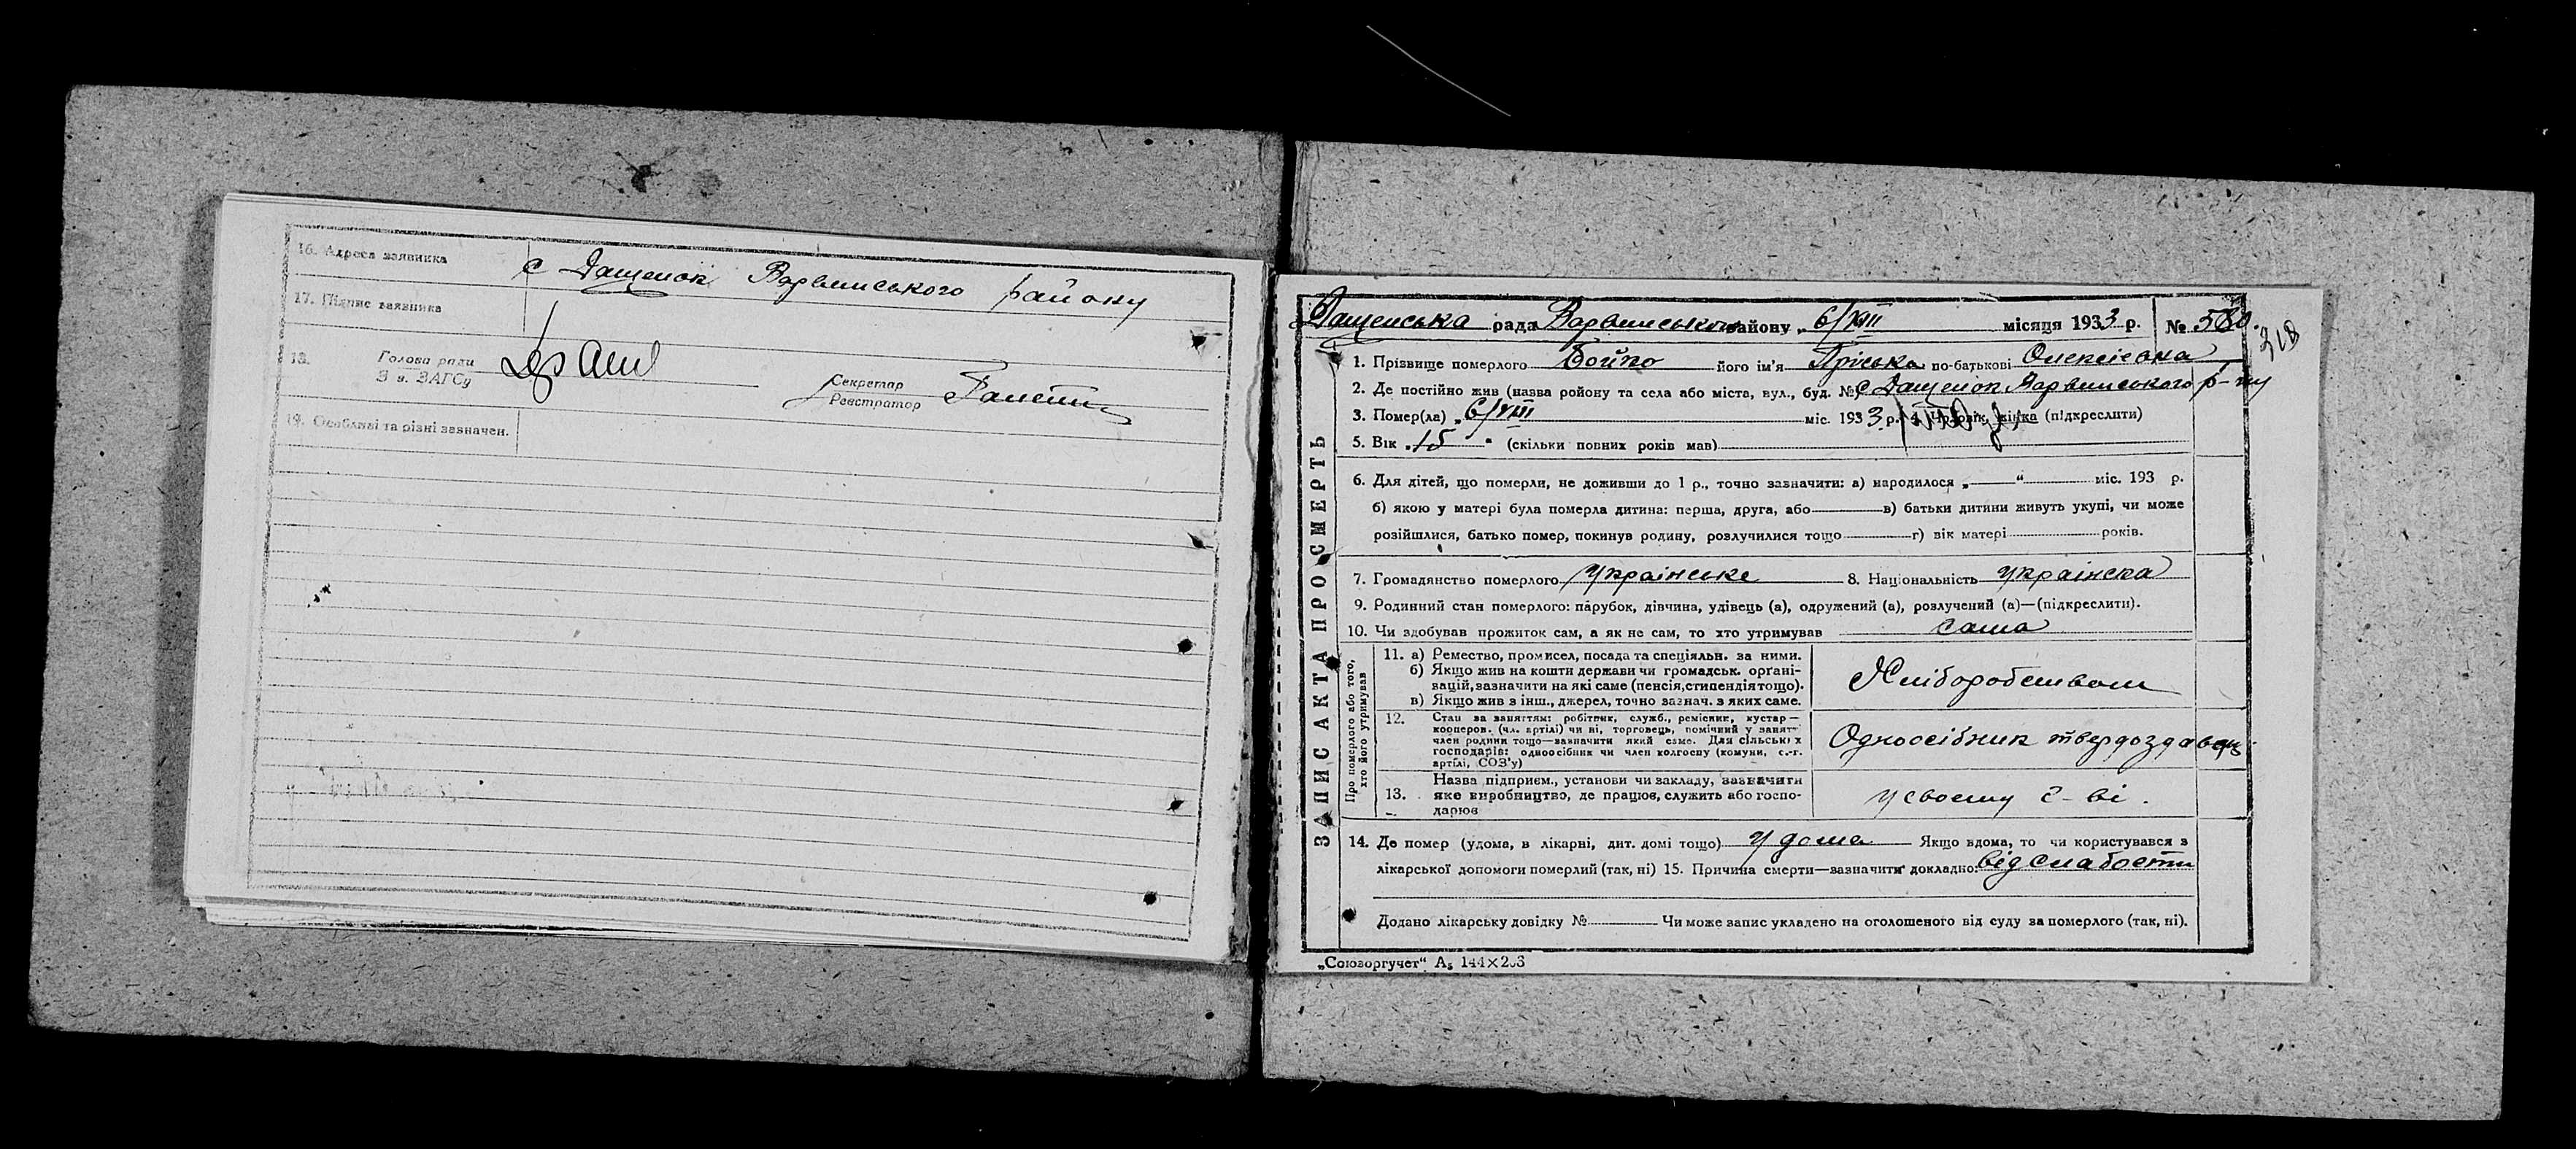 16. Адреса заявника с Дащенок Варвинського району
17. Підпис заявника
18. Голова ради
З в. ЗАГСу
Секретар
Реєстратор
19. Особливі та різні зазначен.
ЗАПИС АКТА ПРО СМЕРТЬ
Дащенська рада Варвинського району „ 6/VIII місяця 1933 р. № 580.
318
1. Прізвище померлого Бойко його ім'я Пріська по-батькові Олексієвна
2. Де постійно жив (назва ройону та села або міста, вул., буд. № с Дащенок Варвинського р-ну
3. Помер(ла) „ 6/VIII міс. 1933 р. 4. Чоловік, жінка (підкреслити)
5. Вік „ 15 " (скільки повних років мав)
6. Для дітей, що померли, не доживши до 1 р., точно зазначити: а) народилося „ “ міс. 193 р.
б) якою у матері була померла дитина: перша, друга, або в) батьки дитини живуть укупі, чи може
розійшлися, батько помер, покинув родину, розлучилися тощо г) вік матері років.
7. Громадянство померлого українське 8. Національність українка
9. Родинний стан померлого: парубок, дівчина, удівець (а), одружений (а), розлучений (а)—(підкреслити).
10. Чи здобував прожиток сам, а як не сам, то хто утримував сама
Про померлого або того,
хто його утримував
11. а) Ремество, промисел, посада та спеціяльн. за ними.
б) Якщо жив на кошти держави чи громадськ. органі-
зацій, зазначити на які саме (пенсія, стипендія тощо).
в) Якщо жив з інш., джерел, точно зазнач. з яких саме.
Хліборобством
12. Стан за заняттям: робітник, служб., ремісник, кустар—
кооперов. (чл. артілі) чи ні, торговець, помічний у занят—
член родини тощо—зазначити який саме. Для сільських
господарів: одноосібник чи член колгоспу (комуни, с.-г.
артілі, СОЗ'у)
Одноосібник твердоздавець
13. Назва підприєм., установи чи закладу, зазначити
яке виробництво, де працює, служить або госпо-
дарює
у своєму г-ві.
14. Де помер (удома, в лікарні, дит. домі тощо) у дома Якщо вдома, то чи користувався з
лікарської допомоги померлий (так, ні) 15. Причина смерти—зазначити докладно: від слабости
Додано лікарську довідку № Чи може запис укладено на оголошеного від суду за померлого (так, ні).
„Союзоргучет“ А₅ 144×203